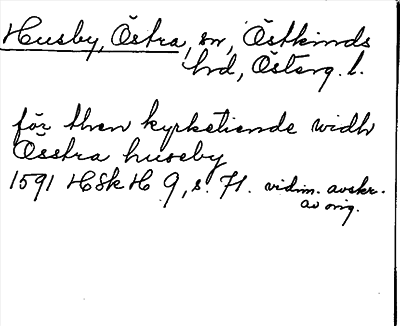 Husby, Östra, sn, Östkinds
hd, Österg. l.
för then kyrketiende widh
Össtra huseby
1591 HSkH 9, s. 71. vidim. avskr.
av orig.